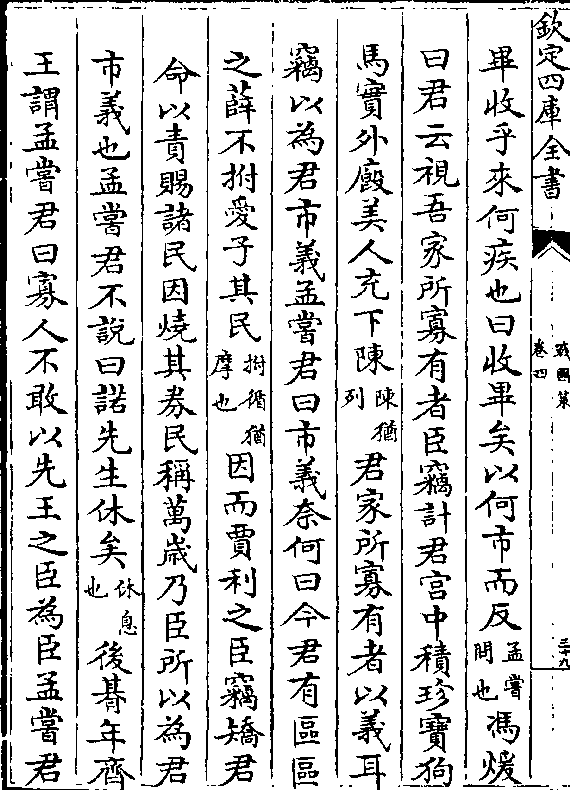 欽定四庫全書
戰國策
卷四
三十九
畢收乎來何疾也曰收畢矣以何市而反孟嘗問也馮煖
曰君云視吾家所寡有者臣竊計君宫中積珍寶狗
馬實外廏美人充下陳陳猶列君家所寡有者以義耳
竊以為君市義孟嘗君曰市義奈何曰今君有區區
之薛不拊愛子其民拊循猶摩也因而賈利之臣竊矯君
命以責賜諸民因燒其券民稱萬歲乃臣所以為君
市義也孟嘗君不說曰諾先生休矣休息也後朞年齊
王謂孟嘗君曰寡人不敢以先王之臣為臣孟嘗君